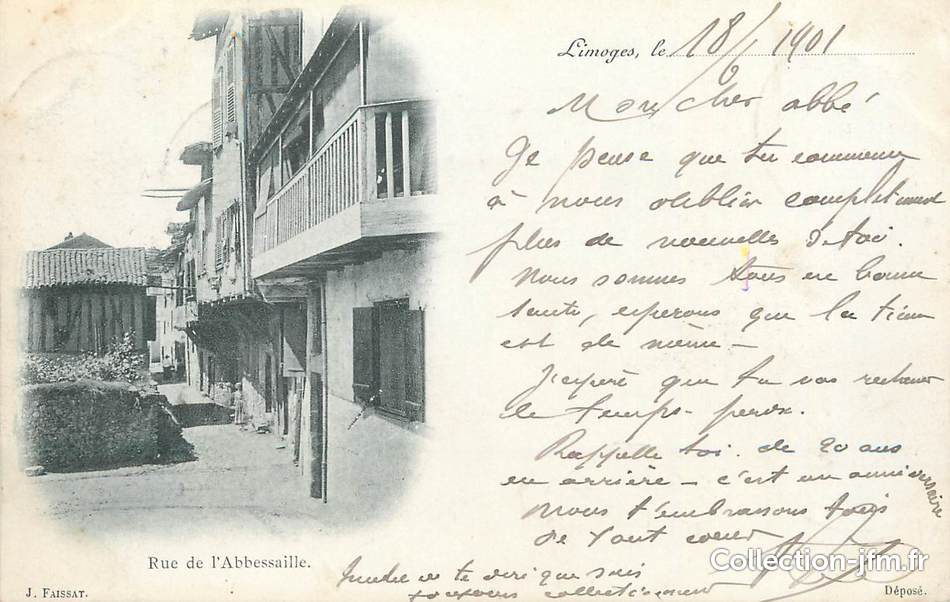 Limoges, le 18/6 1901
Mon cher abbé
Je pense que tu commence
à nous oublier completement
plus de nouvelles de toi.
Nous sommes tous en bonne
santé, esperons que la tienne
est de même —
J'espère que tu vas
le temps-
Rappelle toi de 20 ans
en arrière — c'est un anniversaire
Nous t'embrassons tous
de tout coeur
te dire que suis
toujours collectionneur
Rue de l'Abbessaille.
J. FAISSAT.
Déposé.
Collection-jfm.fr